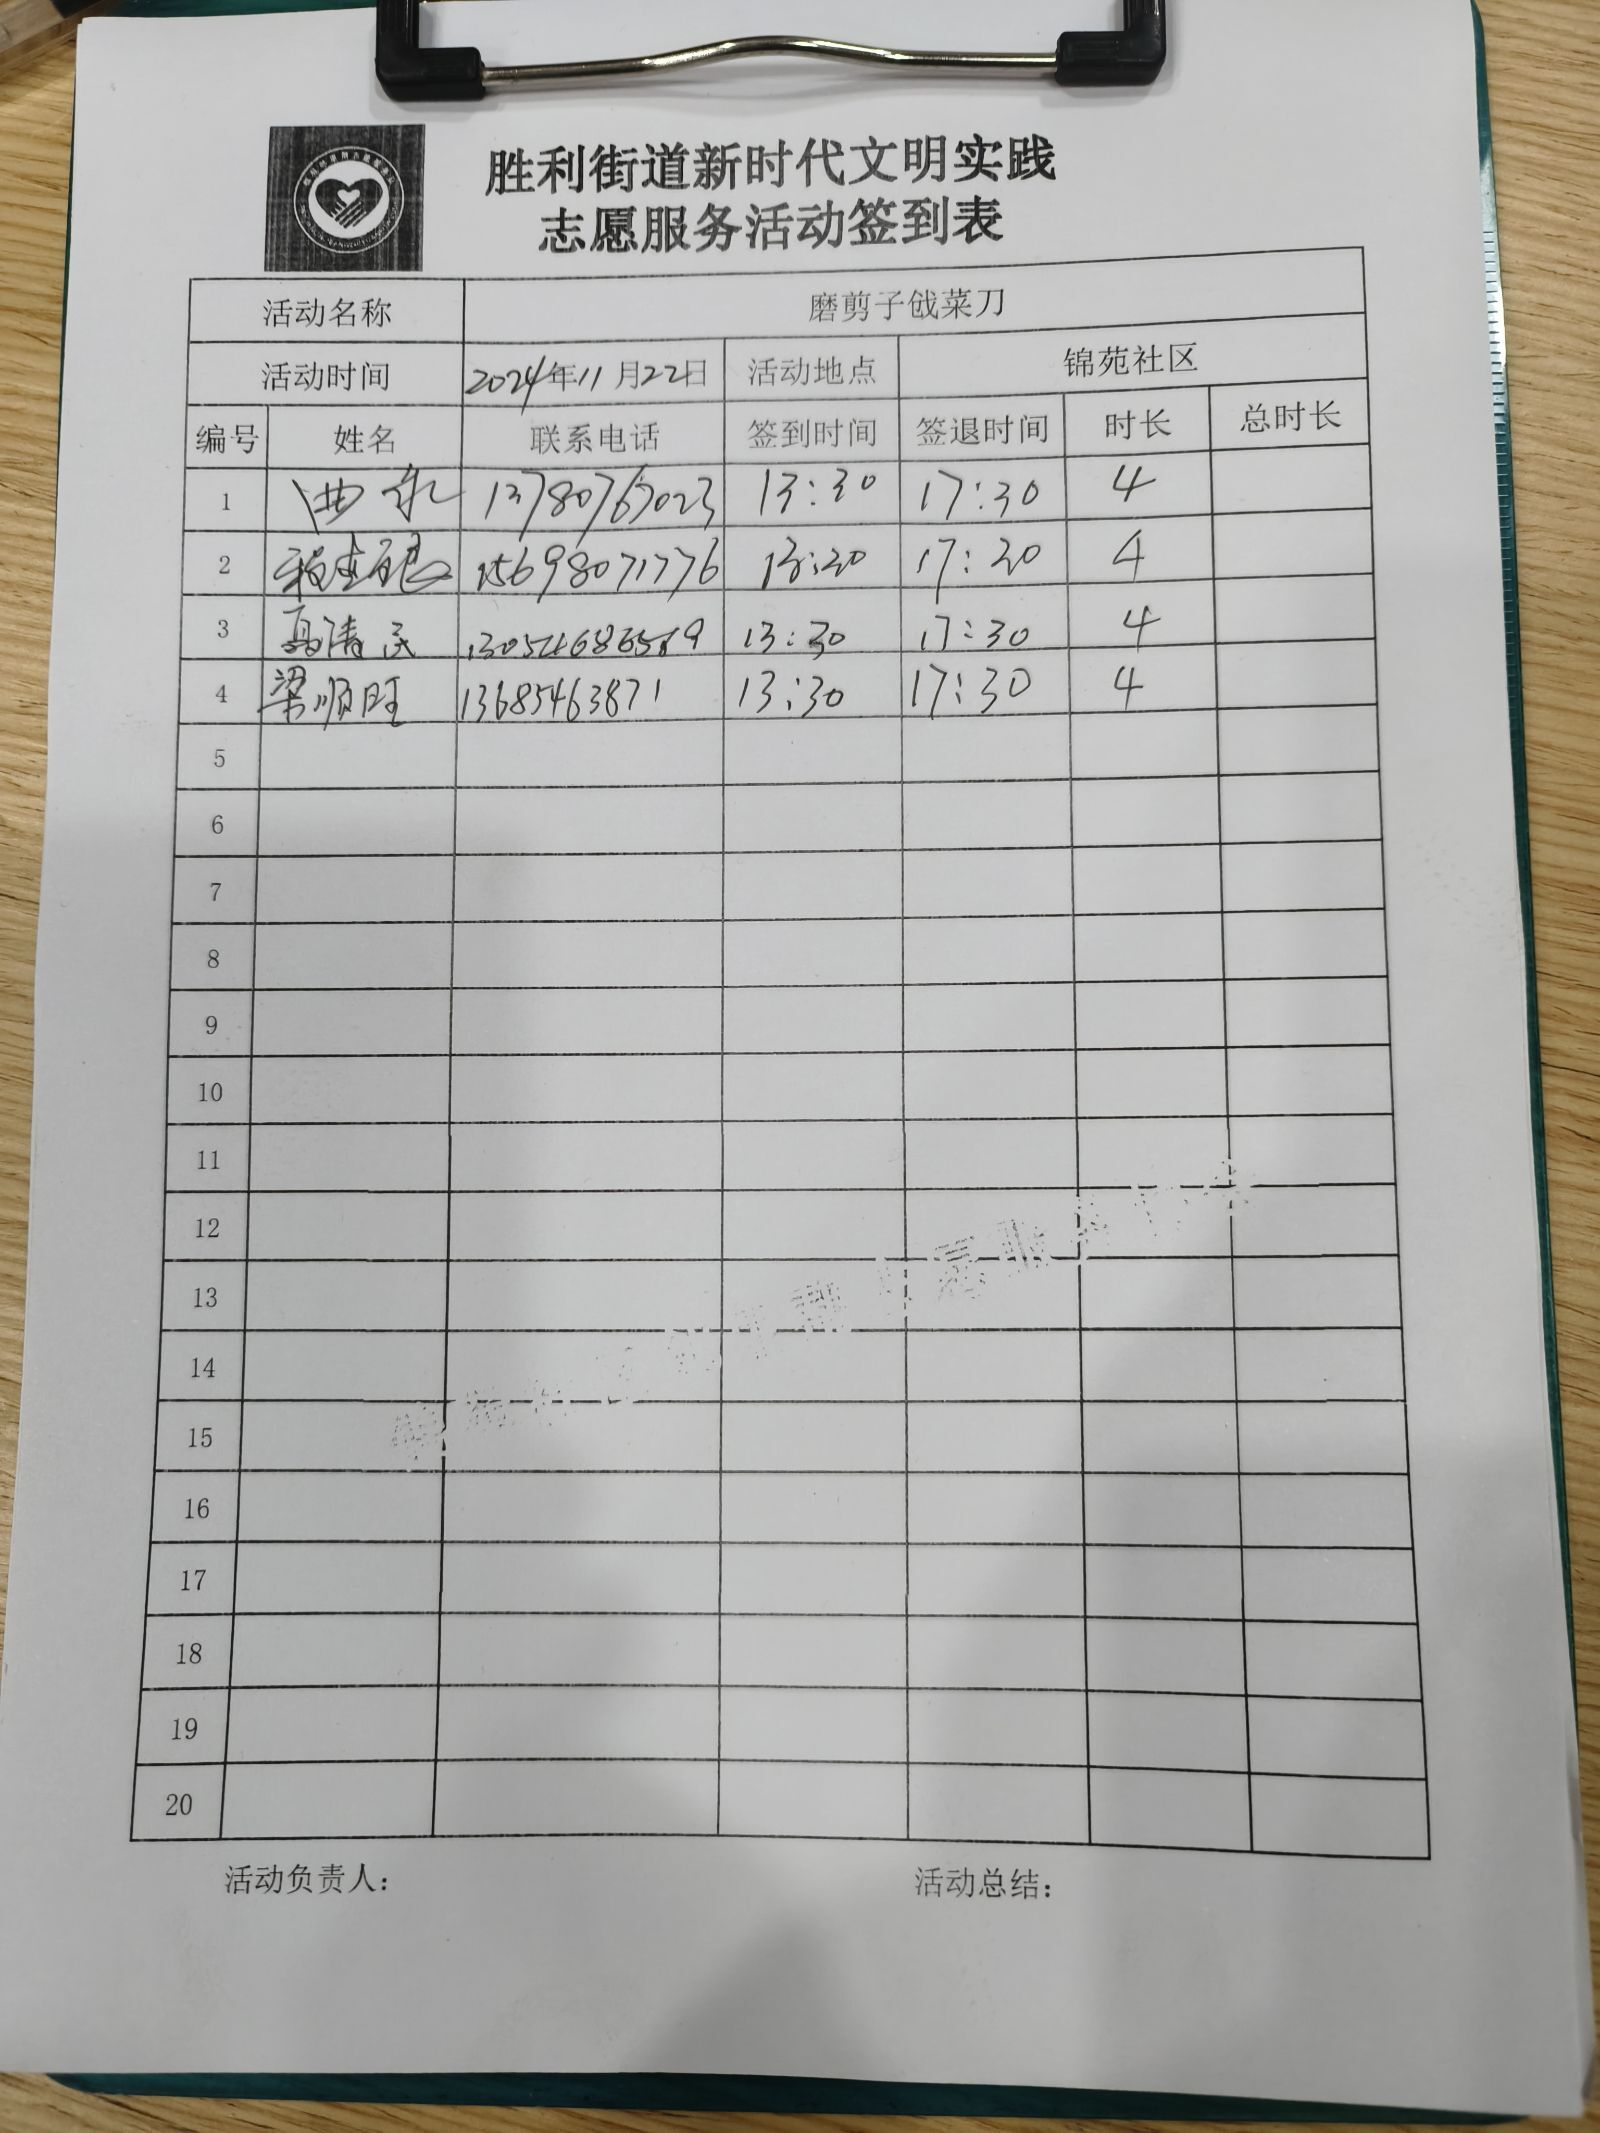 胜利街道新时代文明实践
志愿服务活动签到表
活动名称 磨剪子戗菜刀
活动时间 2024年11月22日 活动地点 锦苑社区
编号 姓名 联系电话 签到时间 签退时间 时长 总时长
1 13:30 17:30 4
2 15698071776 13:20 17:20 4
3 高清民 13:30 17:30 4
4 梁顺旺 13685463871 13:30 17:30 4
5
6
7
8
9
10
11
12
13
14
15
16
17
18
19
20
活动负责人： 活动总结：